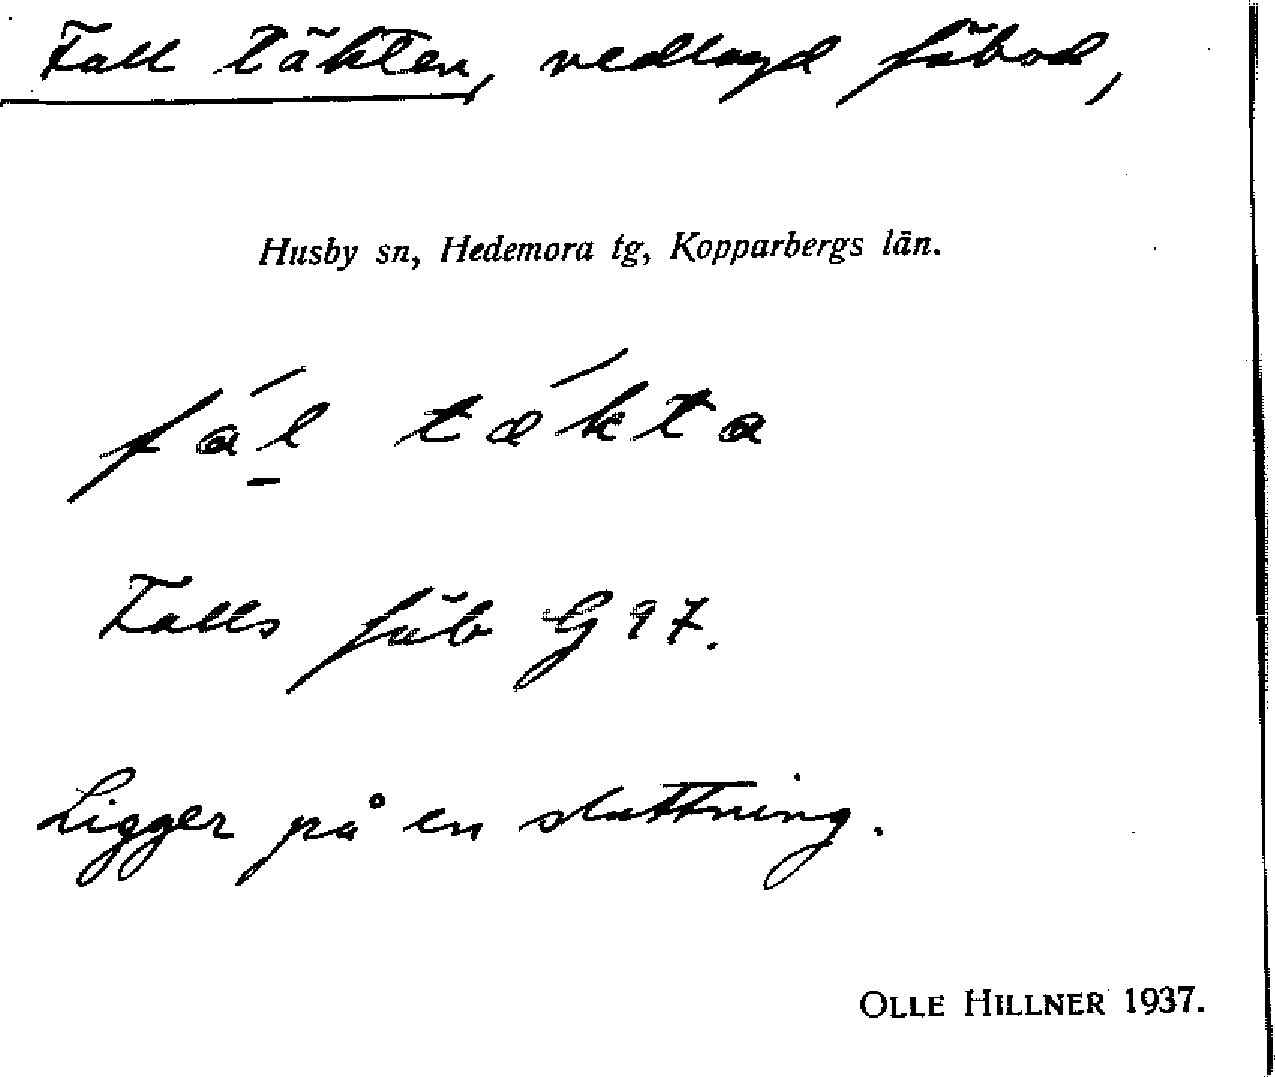 Fall täkten, nedlagd fäbod,
Husby sn, Hedemora tg, Kopparbergs län.
fál tǽkta
Falls fäb G 97.
Ligger på en sluttning.
OLLE HILLNER 1937.